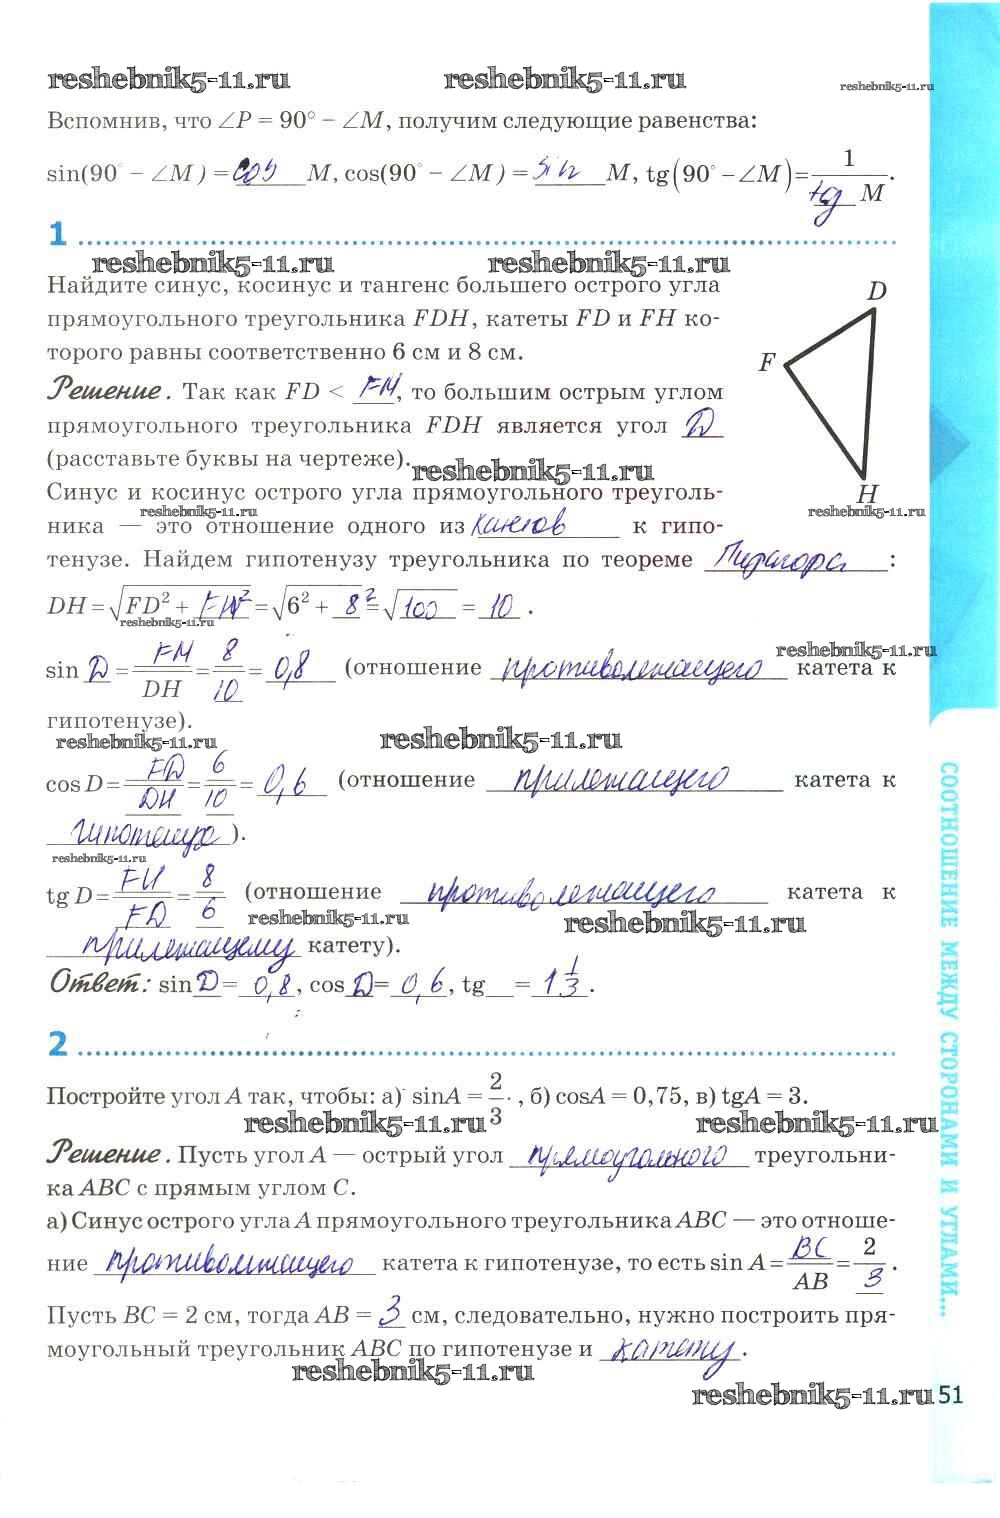 reshebnik5-11.ru reshebnik5-11.ru reshebnik5-11.ru
Вспомнив, что ∠P = 90° − ∠M, получим следующие равенства:
sin(90° − ∠M) = cos M, cos(90° − ∠M) = sin M, tg(90° − ∠M) = 1/tg M.
1
reshebnik5-11.ru reshebnik5-11.ru
Найдите синус, косинус и тангенс большего острого угла
прямоугольного треугольника FDH, катеты FD и FH ко-
торого равны соответственно 6 см и 8 см.
D
F
H
Решение. Так как FD < FH, то большим острым углом
прямоугольного треугольника FDH является угол D
(расставьте буквы на чертеже).
reshebnik5-11.ru
Синус и косинус острого угла прямоугольного треуголь-
reshebnik5-11.ru reshebnik5-11.ru
ника — это отношение одного из катетов к гипо-
тенузе. Найдем гипотенузу треугольника по теореме Пифагора:
DH = √FD² + FH² = √6² + 8² = √100 = 10.
reshebnik5-11.ru
reshebnik5-11.ru
sin D = FH/DH = 8/10 = 0,8 (отношение противолежащего катета к
гипотенузе).
reshebnik5-11.ru reshebnik5-11.ru
cos D = FD/DH = 6/10 = 0,6 (отношение прилежащего катета к
гипотенузе).
reshebnik5-11.ru
tg D = FH/FD = 8/6 (отношение противолежащего катета к
reshebnik5-11.ru reshebnik5-11.ru
прилежащему катету).
Ответ: sin D = 0,8, cos D = 0,6, tg = 1 1/3.
2
Постройте угол A так, чтобы: а) sinA = 2/3, б) cosA = 0,75, в) tgA = 3.
reshebnik5-11.ru reshebnik5-11.ru
Решение. Пусть угол A — острый угол прямоугольного треугольни-
ка ABC с прямым углом C.
а) Синус острого угла A прямоугольного треугольника ABC — это отноше-
ние противолежащего катета к гипотенузе, то есть sin A = BC/AB = 2/3.
Пусть BC = 2 см, тогда AB = 3 см, следовательно, нужно построить пря-
моугольный треугольник ABC по гипотенузе и катету.
reshebnik5-11.ru
reshebnik5-11.ru 51
СООТНОШЕНИЕ МЕЖДУ СТОРОНАМИ И УГЛАМИ...